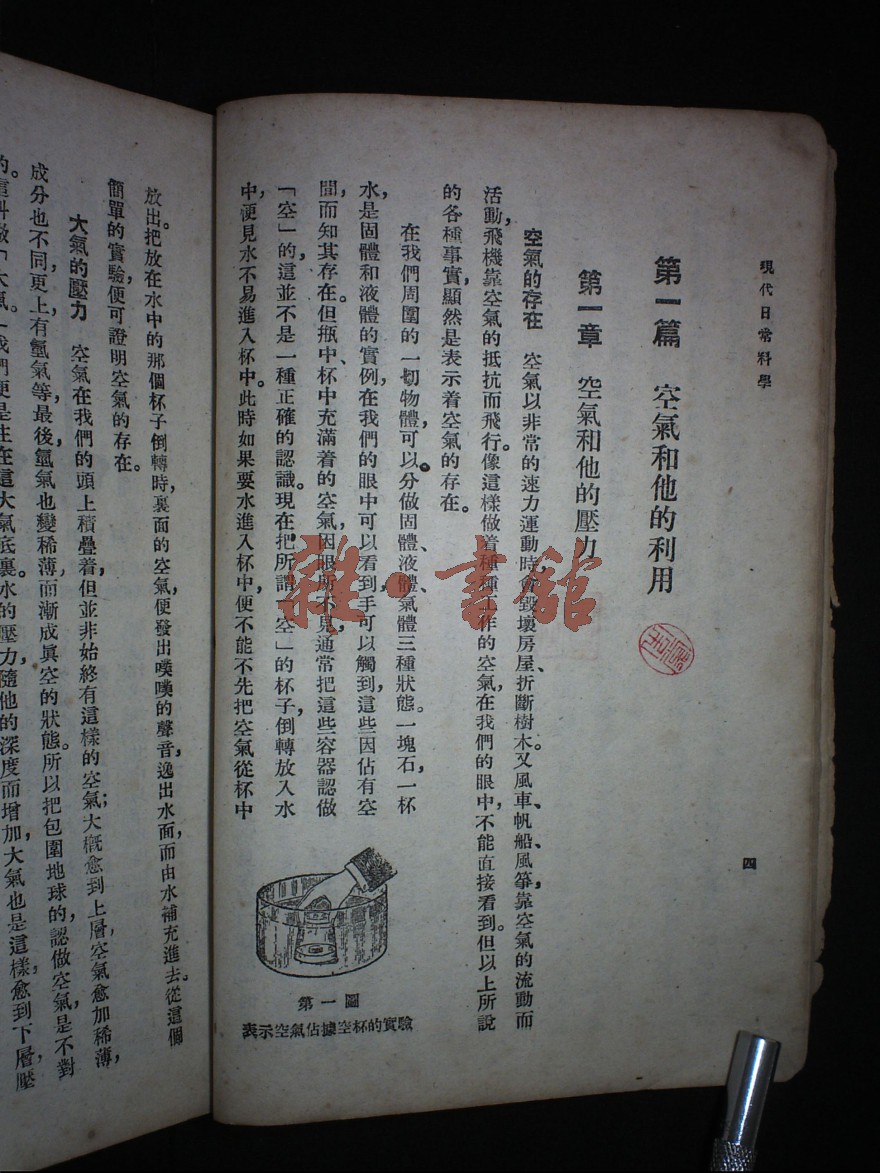 現代日常科學
四
第一篇　空氣和他的利用
第一章　空氣和他的壓力
空氣的存在　空氣以非常的速力運動時，會毀壞房屋、折斷樹木。又風車、帆船、風箏，靠空氣的流動而
活動，飛機靠空氣的抵抗而飛行。像這樣做着種種工作的空氣，在我們的眼中，不能直接看到。但以上所說
的各種事實，顯然是表示着空氣的存在。
在我們周圍的一切物體，可以分做固體、液體、氣體三種狀態。一塊石，一杯
水，是固體和液體的實例，在我們的眼中可以看到，手可以觸到，這些因佔有空
間，而知其存在。但瓶中、杯中充滿着的空氣，因眼所不見，通常把這些容器認做
「空」的，這並不是一種正確的認識。現在把所謂「空」的杯子，倒轉放入水
中，便見水不易進入杯中。此時如果要水進入杯中，便不能不先把空氣從杯中
第一圖
表示空氣佔據空杯的實驗
放出。把放在水中的那個杯子倒轉時，裏面的空氣，便發出噗噗的聲音，逸出水面，而由水補充進去。從這個
簡單的實驗，便可證明空氣的存在。
大氣的壓力　空氣在我們的頭上積疊着，但並非始終有這樣的空氣；大概愈到上層，空氣愈加稀薄，
成分也不同，更上有氫氣等，最後，氫氣也變稀薄，而漸成眞空的狀態。所以把包圍地球的，認做空氣，是不對
的。這叫做「大氣。」我們便是住在這大氣底裏。水的壓力，隨他的深度而增加，大氣也是這樣，愈到下層，壓
雜·書館